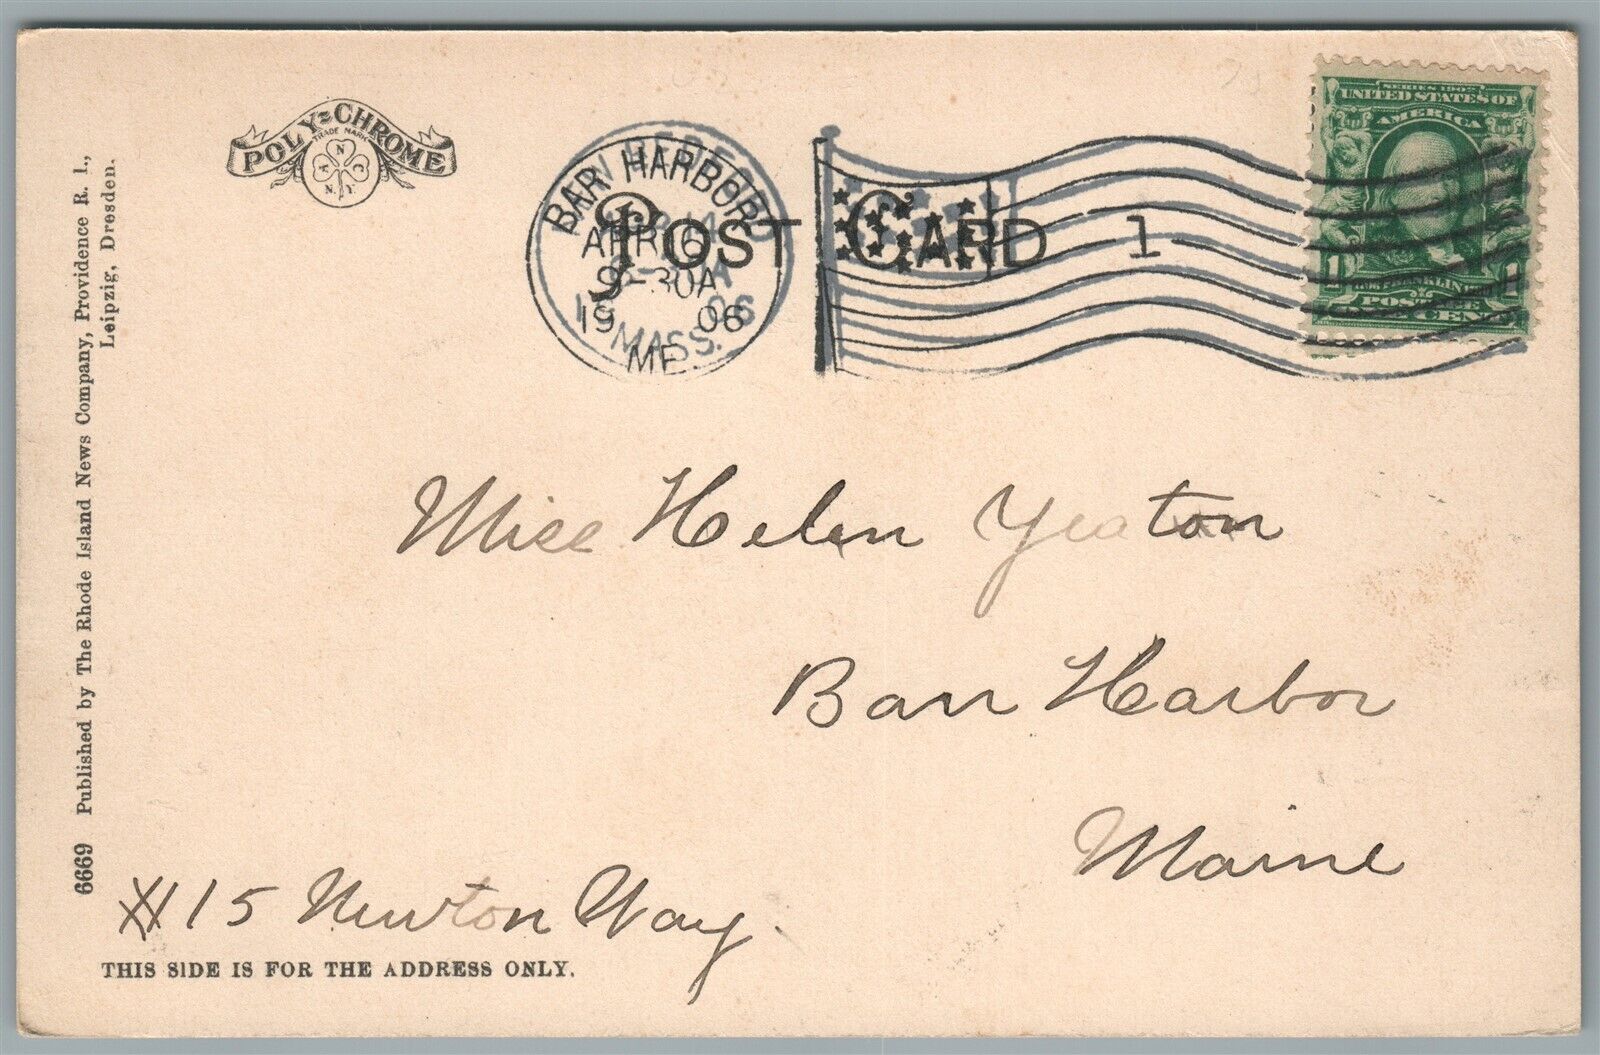 POLY=CHROME
TRADE MARK
A N C
N. Y.
BAR HARBOR
APR 16
9-30A
1906
ME.
MASS.
06
POST CARD
1
SERIES 1902
UNITED STATES OF
AMERICA
1 FRANKLIN 1
POSTAGE
ONE CENT
6669 Published by The Rhode Island News Company, Providence R. I.,
Leipzig, Dresden.
Miss Helen Yeaton
Barr Harbor
Maine
#15 Newton Way.
THIS SIDE IS FOR THE ADDRESS ONLY.